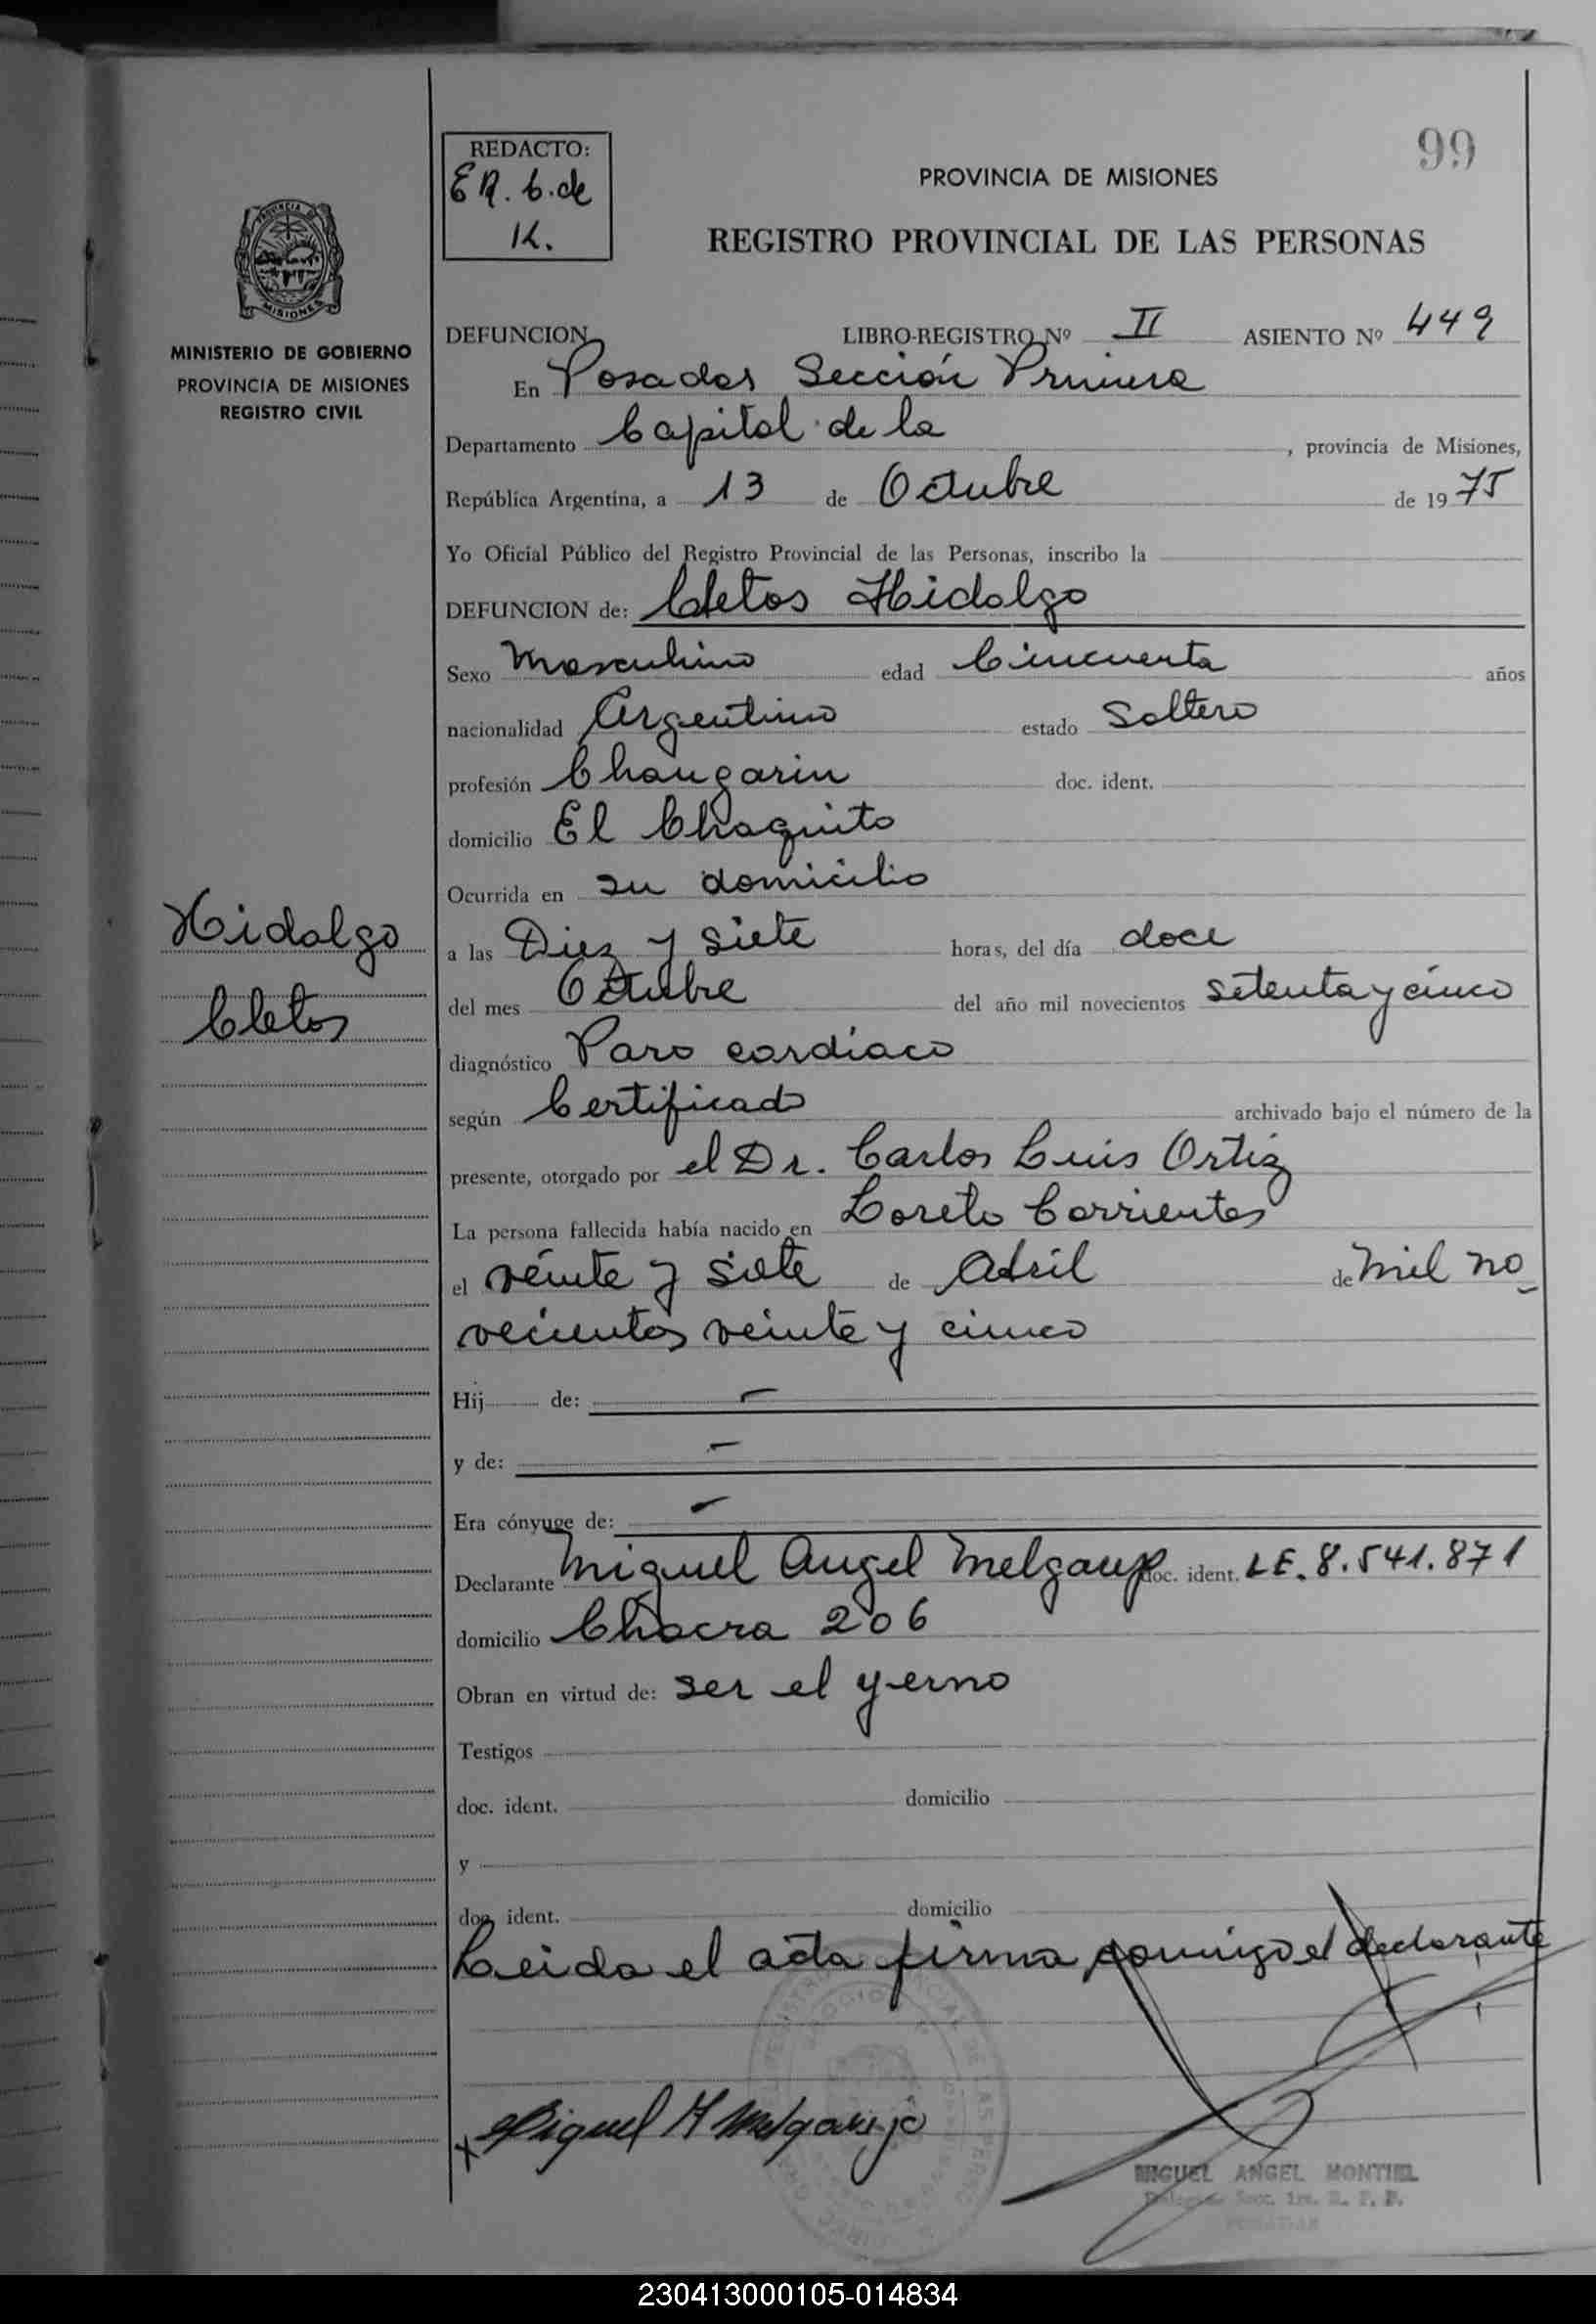 99
REDACTO:
ER. C. de
K.
PROVINCIA DE MISIONES
REGISTRO PROVINCIAL DE LAS PERSONAS
MINISTERIO DE GOBIERNO
PROVINCIA DE MISIONES
REGISTRO CIVIL
DEFUNCION LIBRO-REGISTRO Nº II ASIENTO Nº 449
En Posadas Sección Primera
Departamento Capital de la , provincia de Misiones,
República Argentina, a 13 de Octubre de 1975
Yo Oficial Público del Registro Provincial de las Personas, inscribo la
DEFUNCION de: Cletos Hidalgo
Sexo Masculino edad Cincuenta años
nacionalidad Argentino estado Soltero
profesión Changarin doc. ident.
domicilio El Chaquito
Ocurrida en su domicilio
Hidalgo
Cletos
a las Diez y siete horas, del día doce
del mes Octubre del año mil novecientos setenta y cinco
diagnóstico Paro cardíaco
según Certificado archivado bajo el número de la
presente, otorgado por el Dr. Carlos Luis Ortiz
La persona fallecida había nacido en Loreto Corrientes
el veinte y siete de Abril de mil no
vecientos veinte y cinco
Hij de: -
y de: -
Era cónyuge de: -
Declarante Miguel Angel Melgarejo doc. ident. LE. 8.541.871
domicilio Chacra 206
Obran en virtud de: ser el yerno
Testigos
doc. ident. domicilio
y
doc. ident. domicilio
Leida el acta firma conmigo el declarante
x Miguel A Melgarejo
MIGUEL ANGEL MONTIEL
230413000105-014834